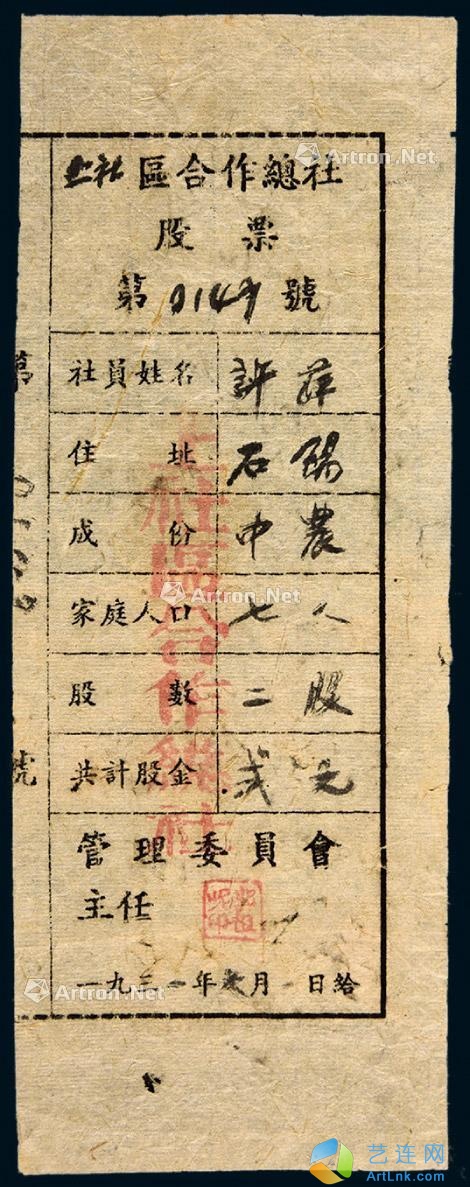 上社區合作總社
股票
第 號
社員姓名 許萍
住址 石陽
成份 中農
家庭人口 七人
股數 二股
共計股金 弍元
管理委員會
主任
一九三一年 月一日給
上社區合作總社
第
號
Artron.Net
Artron.Net
Artron.Net
Artron.Net
艺连网
ArtLnk.Com